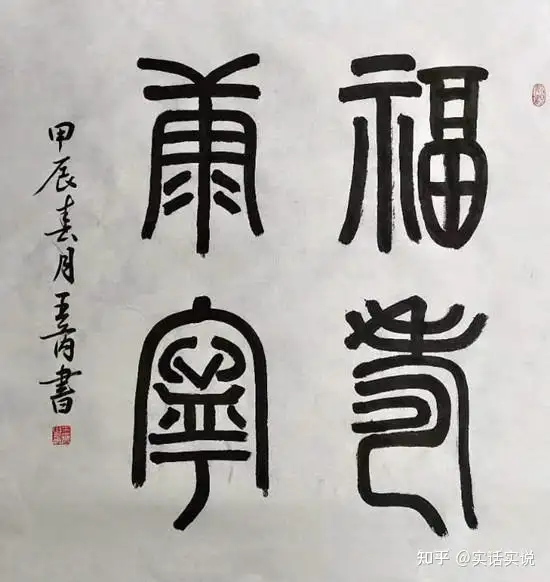 福壽
康寧
甲辰春月王書
知乎 @实话实说